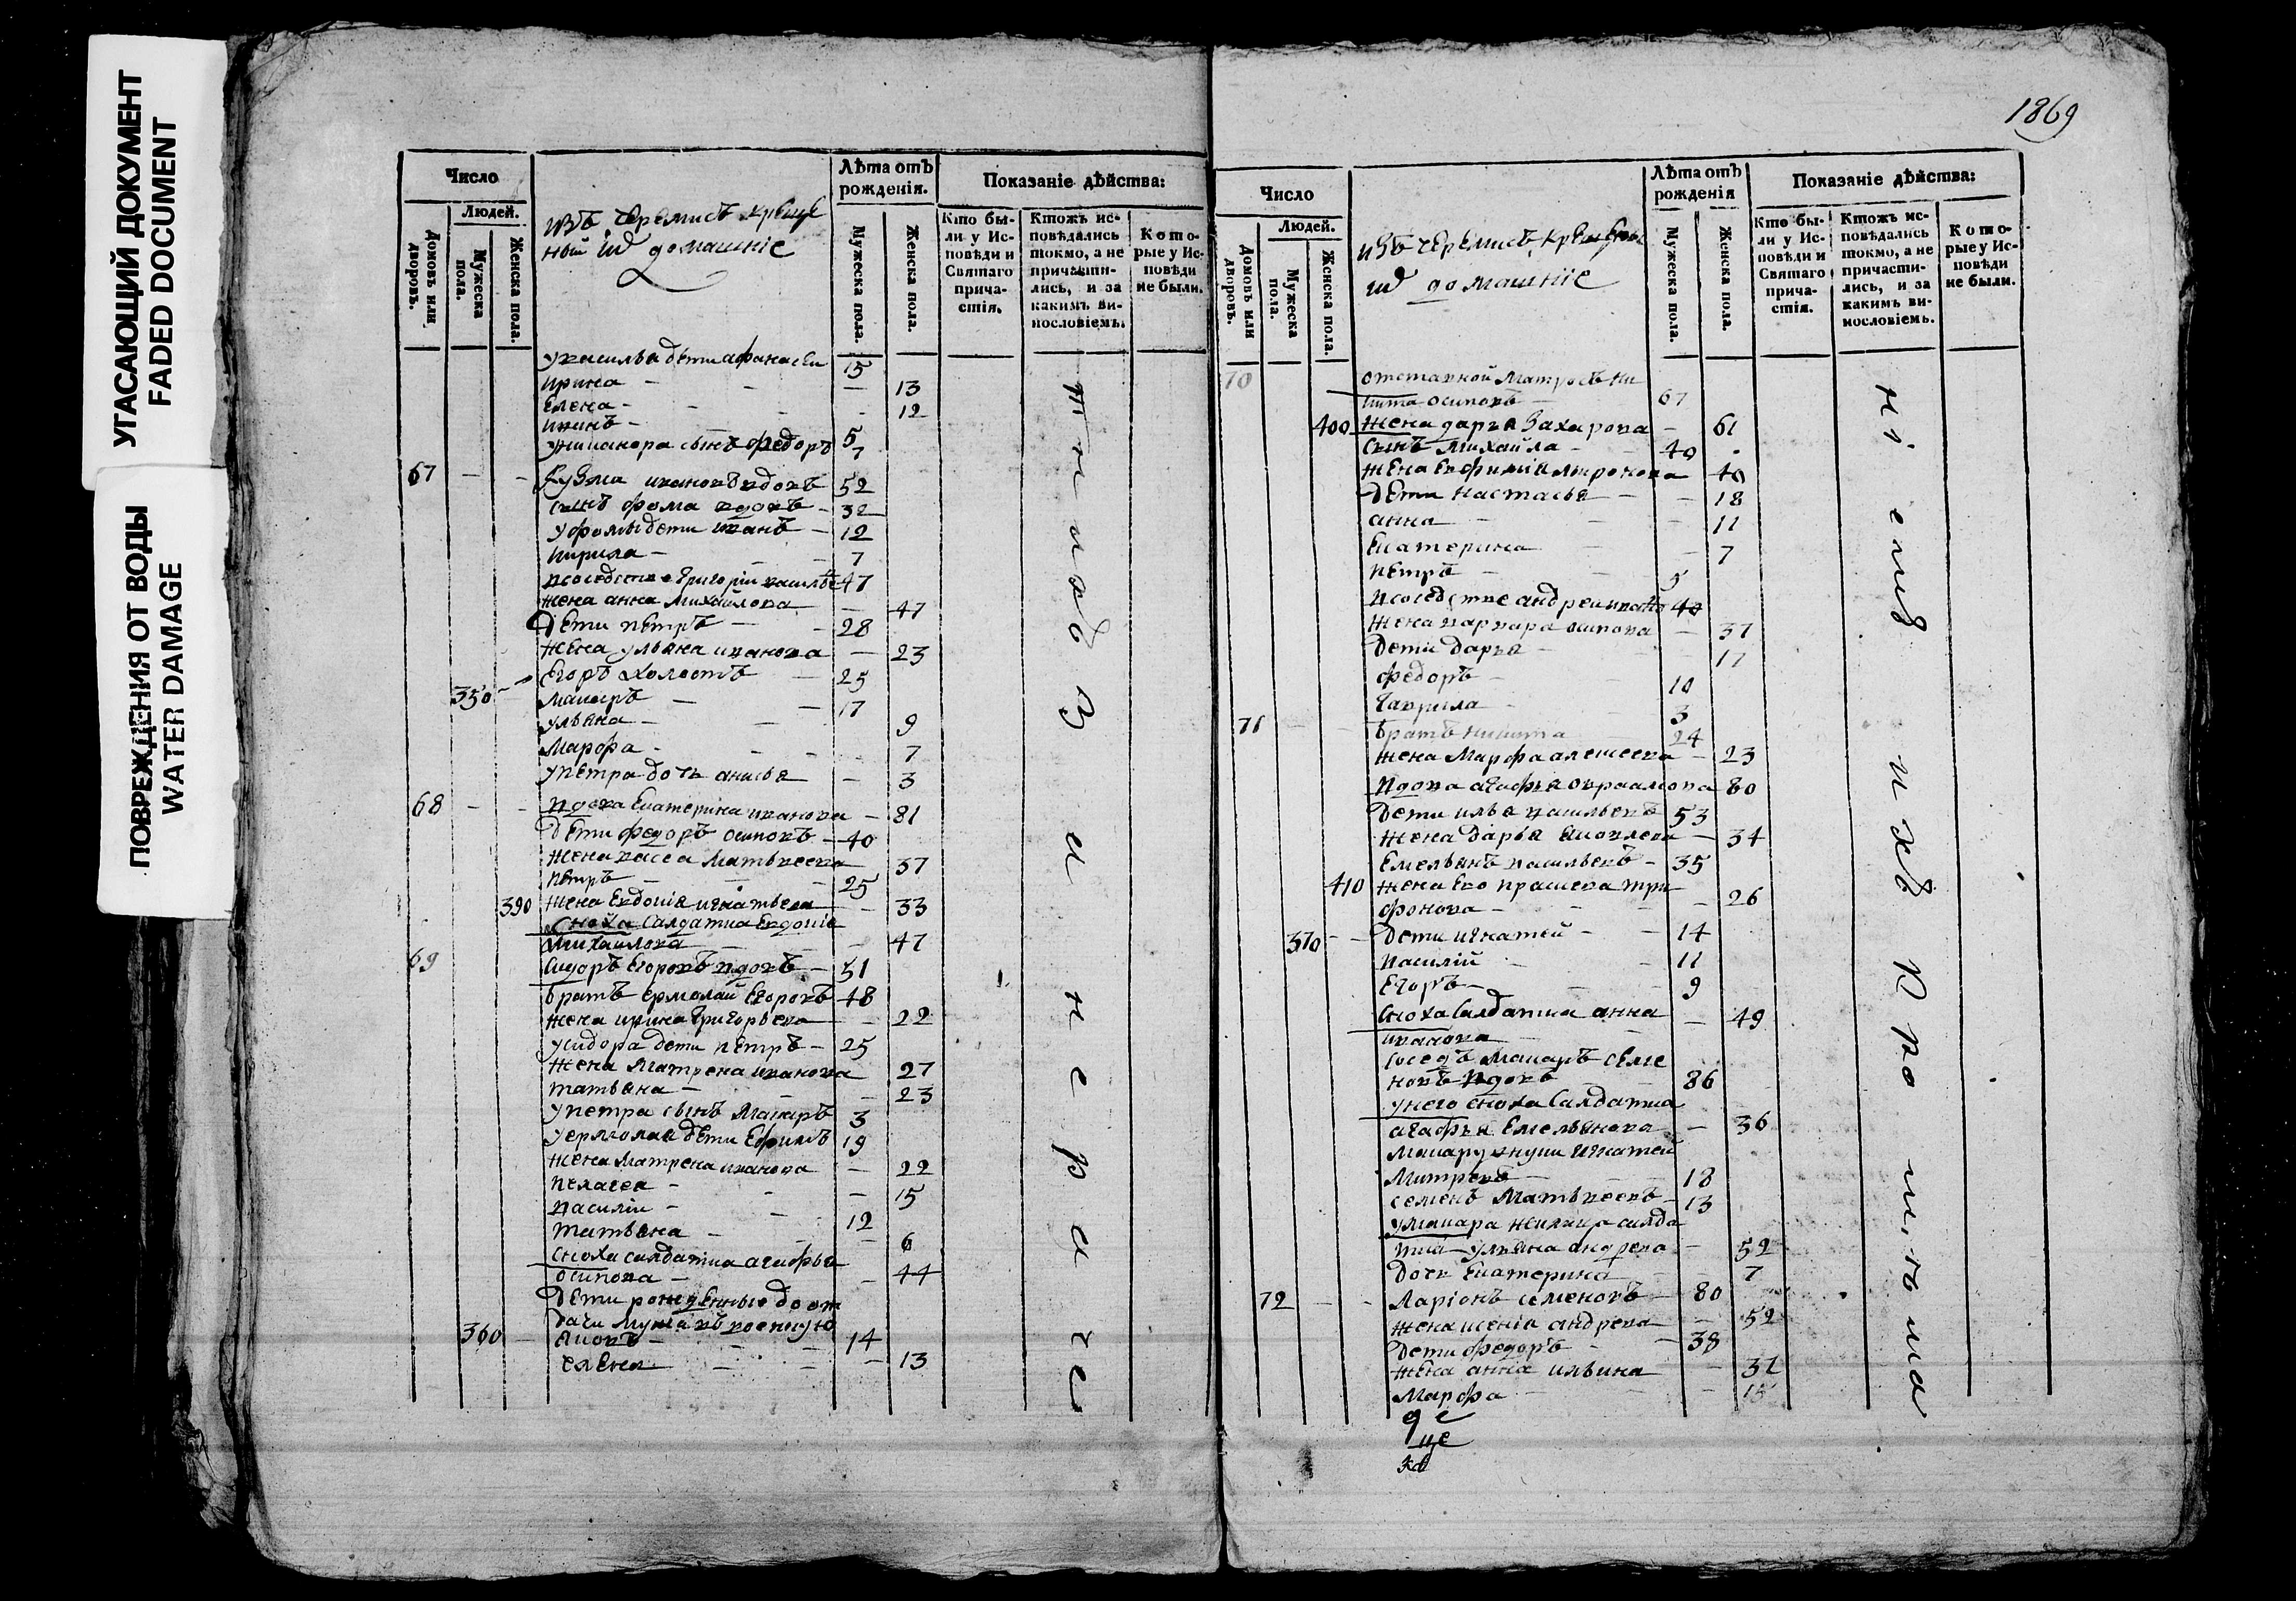 УГАСАЮЩИЙ ДОКУМЕНТ
FADED DOCUMENT
ПОВРЕЖДЕНИЯ ОТ ВОДЫ
WATER DAMAGE
Число
Людей.
Домовъ или дворовъ.
Мужеска пола.
Женска пола.
изъ черемисъ креще
ный ид домашніе
Лѣта отъ рожденія.
Мужеска пола.
Женска пола.
Показаніе дѣйства:
Кто бы-
ли у Ис-
повѣди и
Святаго
прича-
стія.
Ктожъ ис-
повѣдались
токмо, а не
причасти-
лись, и за
какимъ ви-
нословіемъ.
Кото-
рые у Ис-
повѣди
не были.
у василья дети афанасеи 15
ирина - 13
Елена - 12
иванъ - 5
сынъ федоръ 7
67 - - Кузма ивановъ вдовъ 52
сынъ фома вдовъ - 32
у фомы дети иванъ - 12
кирила - 7
всоседстве григорій василье 47
жена анна михайлова - 47
Дети петръ - 28
жена ульяна иванова - 23
Егоръ холостъ 25
350 - макаръ - 17
ульяна - 9
марфа - 7
у петра дочь анисья - 3
68 - - вдова Екатерина иванова - 81
дети федоръ осиповъ - 40
жена васса матвеева 37
петръ - 25
390 жена Евдокія игнатьева - 33
сноха салдатка Евдокія
михаилова - 47
69 сидоръ Егоровъ вдовъ - 51
братъ ермолай Егоровъ 48
жена ирина григорьева - 22
у сидора дети петръ - 25
жена матрена иванова 27
татьяна - 23
у петра сынъ макаръ 3
у ермолая дети Ефимъ 19
жена матрена иванова - 22
пелагея - 15
василіи - 12
татьяна - 6
сноха салдатка агафья
осипова - 44
дети рожденные до от
дачи мужа въ военную
360 - яковъ - 14
елена - 13
1869
Число
Людей.
Домовъ или дворовъ.
Мужеска пола.
Женска пола.
изъ черемисъ крещеные
ид домашніе
Лѣта отъ рожденія
Мужеска пола.
Женска пола.
Показаніе дѣйства:
Кто бы-
ли у Ис-
повѣди и
Святаго
прича-
стія.
Ктожъ ис-
повѣдались
токмо, а не
причасти-
лись, и за
какимъ ви-
нословіемъ.
Кото-
рые у Ис-
повѣди
не были.
70 отставной матросъ ни
кита осиповъ - 67
400 жена дарья захарова - 61
сынъ михайла - 40
жена Евфимія миронова 40
дети настасья - 18
анна - 11
Екатерина - 7
петръ - 5
всоседстве андреи ивано 40
жена варвара осипова - 37
дети дарья - 17
федоръ - 10
гаврила - 3
71 - - братъ никита 24
жена марфа алексеева - 23
вдова агафья авраамова 80
дети илья васильевъ 53
жена дарья яковлева - 34
Емельянъ васильевъ - 35
410 жена его прасковья три
фонова - 26
370 - - дети игнатей - 14
василій - 11
Егоръ - 9
сноха салдатка анна - 49
иванова -
соседъ макаръ семе
новъ вдовъ 86
у него сноха салдатка
агафья Емельянова - 36
макару внуки игнатей
18
семенъ матвеевъ - 13
у макара жилица салда
тка ульяна андреева - 52
дочь Екатерина - 7
72 - - ларіонъ семеновъ - 80
жена ксенія андреева 52
дети федоръ - 38
жена анна ильина - 31
марфа - 15